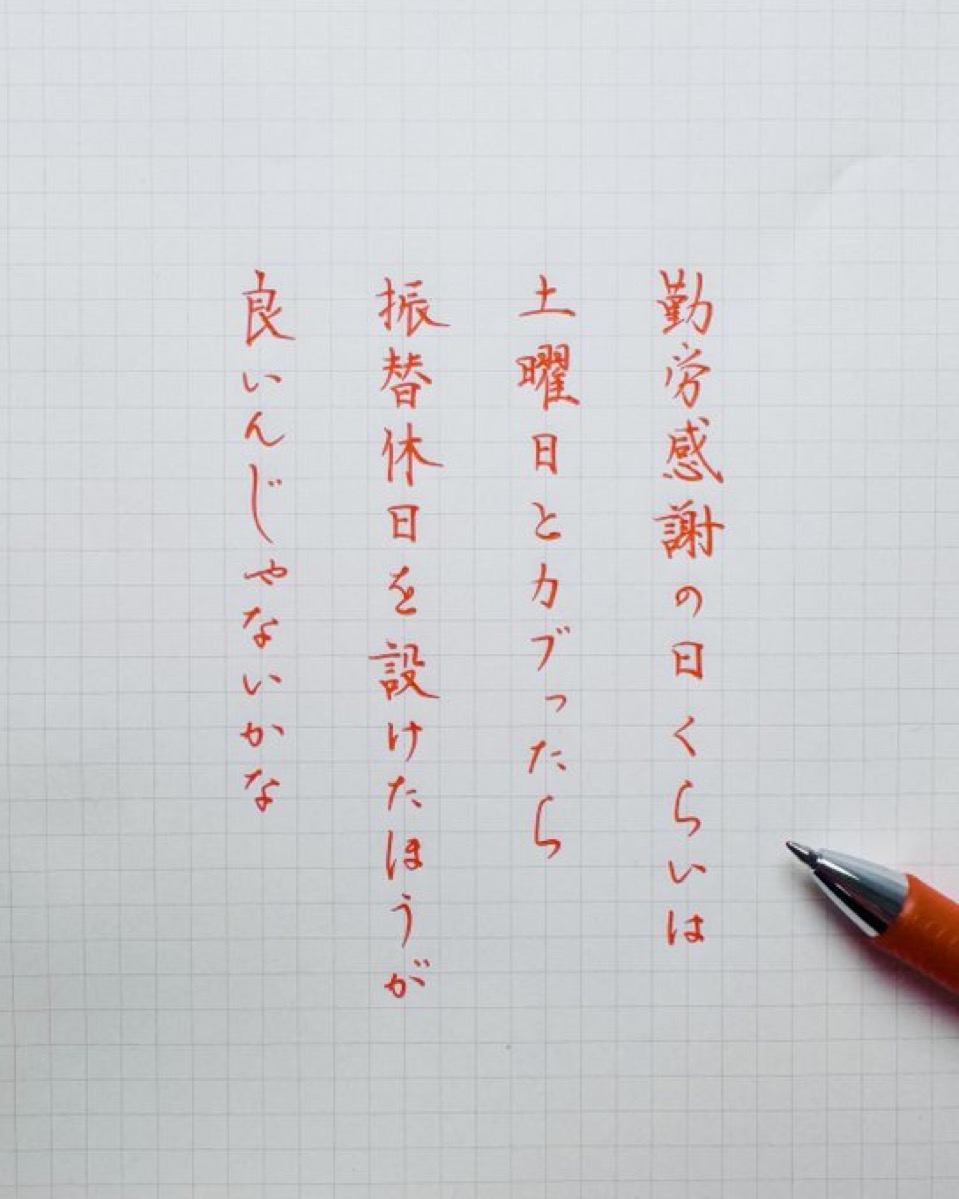 勤労感謝の日くらいは
土曜日とカブったら
振替休日を設けたほうが
良いんじゃないかな